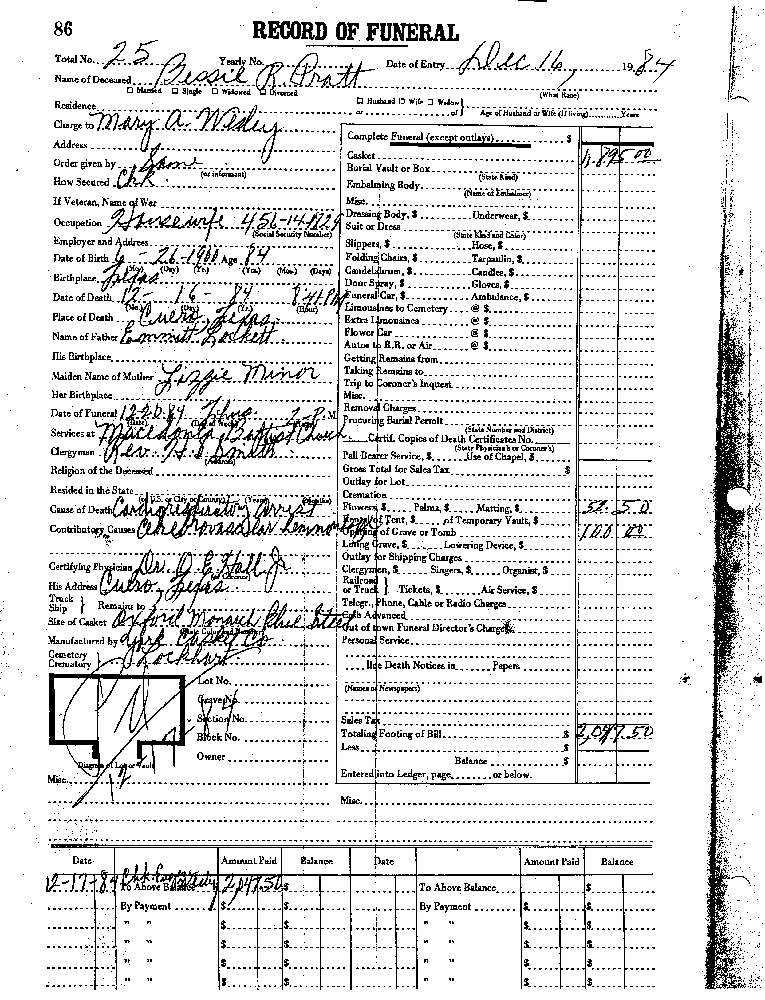 86
RECORD OF FUNERAL
Total No. 25 Yearly No. Date of Entry Dec 16, 1984
Name of Deceased Bessie R. Pratt
☐ Married ☐ Single ☐ Widowed ☐ Divorced (What Race)
Residence ☐ Husband ☐ Wife ☐ Widow } or of Age of Husband or Wife (If living) Years
Charge to Mary A. Wesley
Address
Order given by Same
(or informant)
How Secured Chk
If Veteran, Name of War
Occupation Housewife 456-14-
(Social Security Number)
Employer and Address
Date of Birth 6-26-1900 Age 84
(Mo.) (Day) (Yr.) (Yrs.) (Mos.) (Days)
Birthplace Texas
Date of Death 12-16-84
(Mo.) (Day) (Yr.) (Hour)
Place of Death Cuero, Texas
Name of Father Emmitt Lockett
His Birthplace
Maiden Name of Mother Lizzie Minor
Her Birthplace
Date of Funeral 12-20-84 Thur. 2 P.M
Services at Macedonia Baptist Church
Clergyman Rev. H. S. Smith
(Address)
Religion of the Deceased
Resided in the State
Cause of Death Cardiorespiratory Arrest
Contributory Causes Cerebrovascular
Certifying Physician Dr. O. E. Hall Jr
His Address Cuero, Texas
Truck Ship } Remains to
Size of Casket Oxford Monarch Blue Steel
Manufactured by York Casket Co
Cemetery Crematory } Lockhart
Lot No.
Grave No.
Section No.
Block No.
Owner
Diagram of Lot or Vault
Misc.
Complete Funeral (except outlays) $
Casket 1,895 00
Burial Vault or Box
(State Kind)
Embalming Body
(Name of Embalmer)
Misc.
Dressing Body, $ Underwear, $
Suit or Dress
(State Kind and Color)
Slippers, $ Hose, $
Folding Chairs, $ Tarpaulin, $
Candelabrum, $ Candles, $
Door Spray, $ Gloves, $
Funeral Car, $ Ambulance, $
Limousines to Cemetery @ $
Extra Limousines @ $
Flower Car @ $
Autos to R.R. or Air @ $
Getting Remains from
Taking Remains to
Trip to Coroner's Inquest
Misc.
Removal Charges
Procuring Burial Permit
(State Number and District)
Certif. Copies of Death Certificates No.
(State Physician's or Coroner's)
Pall Bearer Service, $ Use of Chapel, $
Gross Total for Sales Tax $
Outlay for Lot
Cremation
Flowers, $ Palms, $ Matting, $ 52.50
Rental of Tent, $ of Temporary Vault, $
Opening of Grave or Tomb 100 00
Lining Grave, $ Lowering Device, $
Outlay for Shipping Charges
Clergymen, $ Singers, $ Organist, $
Railroad or Truck } Tickets, $ Air Service, $
Telegr., Phone, Cable or Radio Charges
Cash Advanced
Out of town Funeral Director's Charges
Personal Service
Use Death Notices in Papers
(Names of Newspapers)
Sales Tax
Totaling Footing of Bill $ 2,047.50
Less $
Balance $
Entered into Ledger, page or below.
Misc.
Date Amount Paid Balance Date Amount Paid Balance
12-17-84 To Above Balance 2,047.50 $ To Above Balance $
By Payment $ $ By Payment $ $
" " $ $ " " $ $
" " $ $ " " $ $
" " $ $ " " $ $
" " $ $ " " $ $